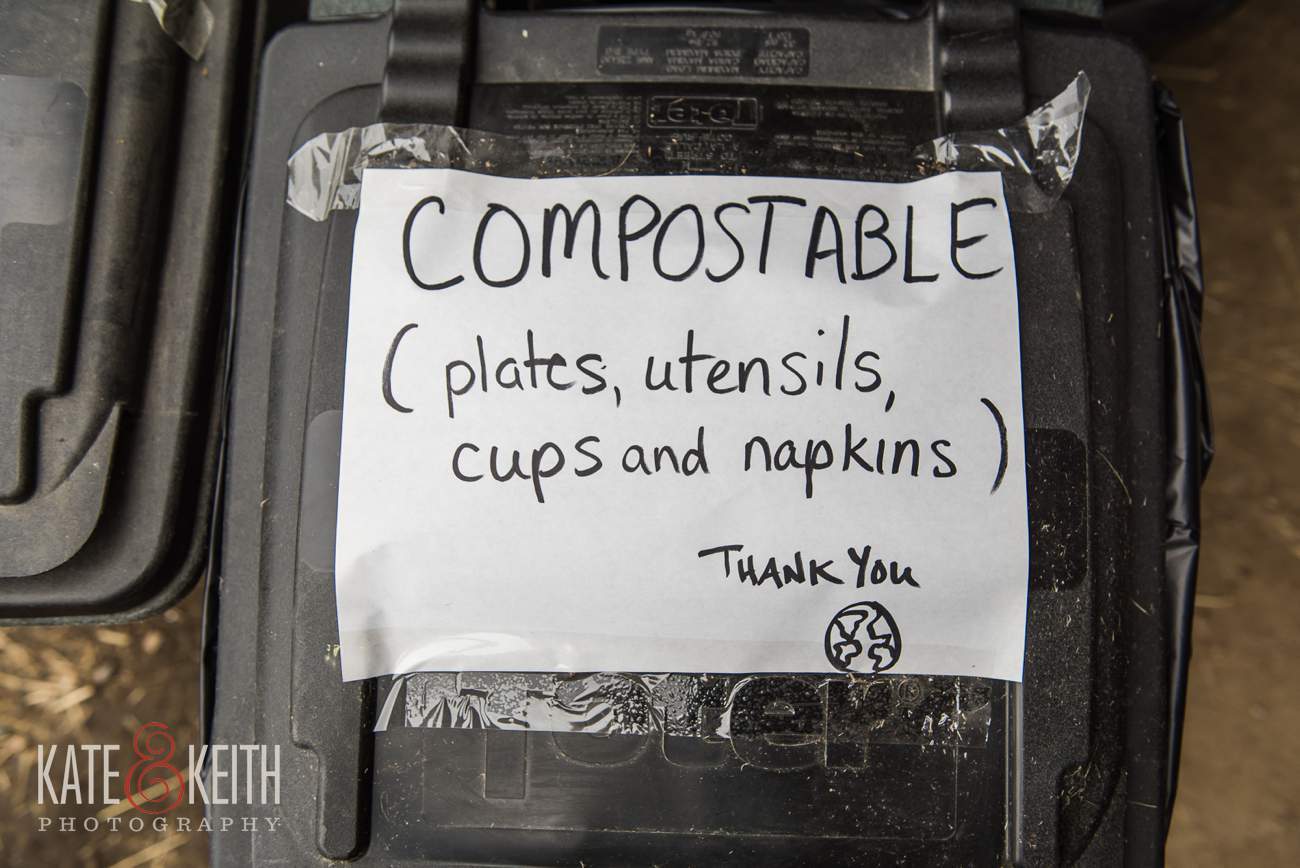 COMPOSTABLE
(plates, utensils,
cups and napkins)
THANK YOU
Toter
KATE & KEITH
PHOTOGRAPHY